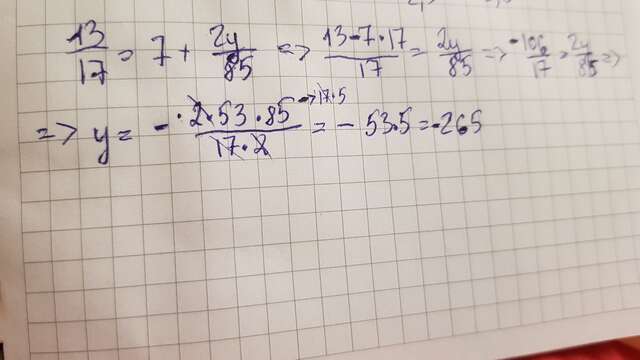 13/17 = 7 + 2y/85 => (13-7·17)/17 = 2y/85 => -106/17 = 2y/85 =>
=> y = - (2·53·85 → 17·5)/(17·2) = - 53·5 = -265